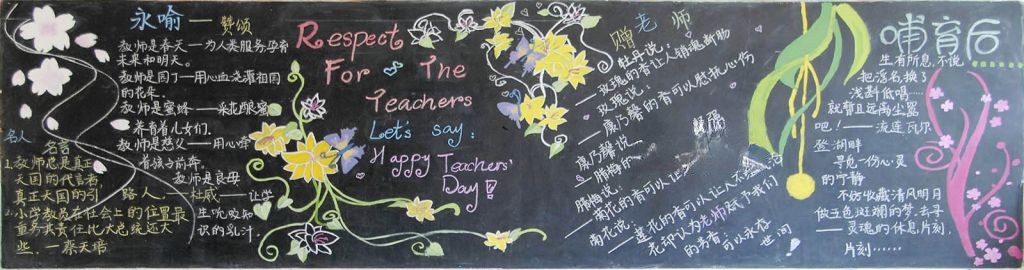 永喻——赞颂
教师是春天—为人类服务孕育
未来和明天。
教师是园丁—用心血浇灌祖国
的花朵。
教师是蜜蜂——采花酿蜜
养育着儿女们。
教师是慈父——用心牵
着孩子前奔。
教师是良母
——让学
生吮吸知
识的乳汁。
名人
名言
1.教师总是真正
天国的代言者
真正天国的引
路人。—杜威
2.小学教员在社会上的位置最
重要其责任比大总统还大
些.—蔡元培
Respect
For The
Teachers
Let's say:
Happy Teachers'
Day!
赠老师
牡丹说:
—玫瑰的香让人销魂断肠
玫瑰说:
—康乃馨的香可以慰抚心伤
康乃馨说:
—腊梅的
腊梅说:
菊花的香可以让
菊花说:
—莲花的香可以让人不
老却认为老师赋予我们
的芳香,可以永存
世间!
哺育后
生有所息,不说
把浮名换了
浅斟低唱……
就暂且远离尘嚣
吧!——流连瓦尔
登湖畔
寻觅一份心灵
的宁静
不妨收藏清风明月
做五色斑斓的梦,去寻
——灵魂的休息片刻.
片刻……